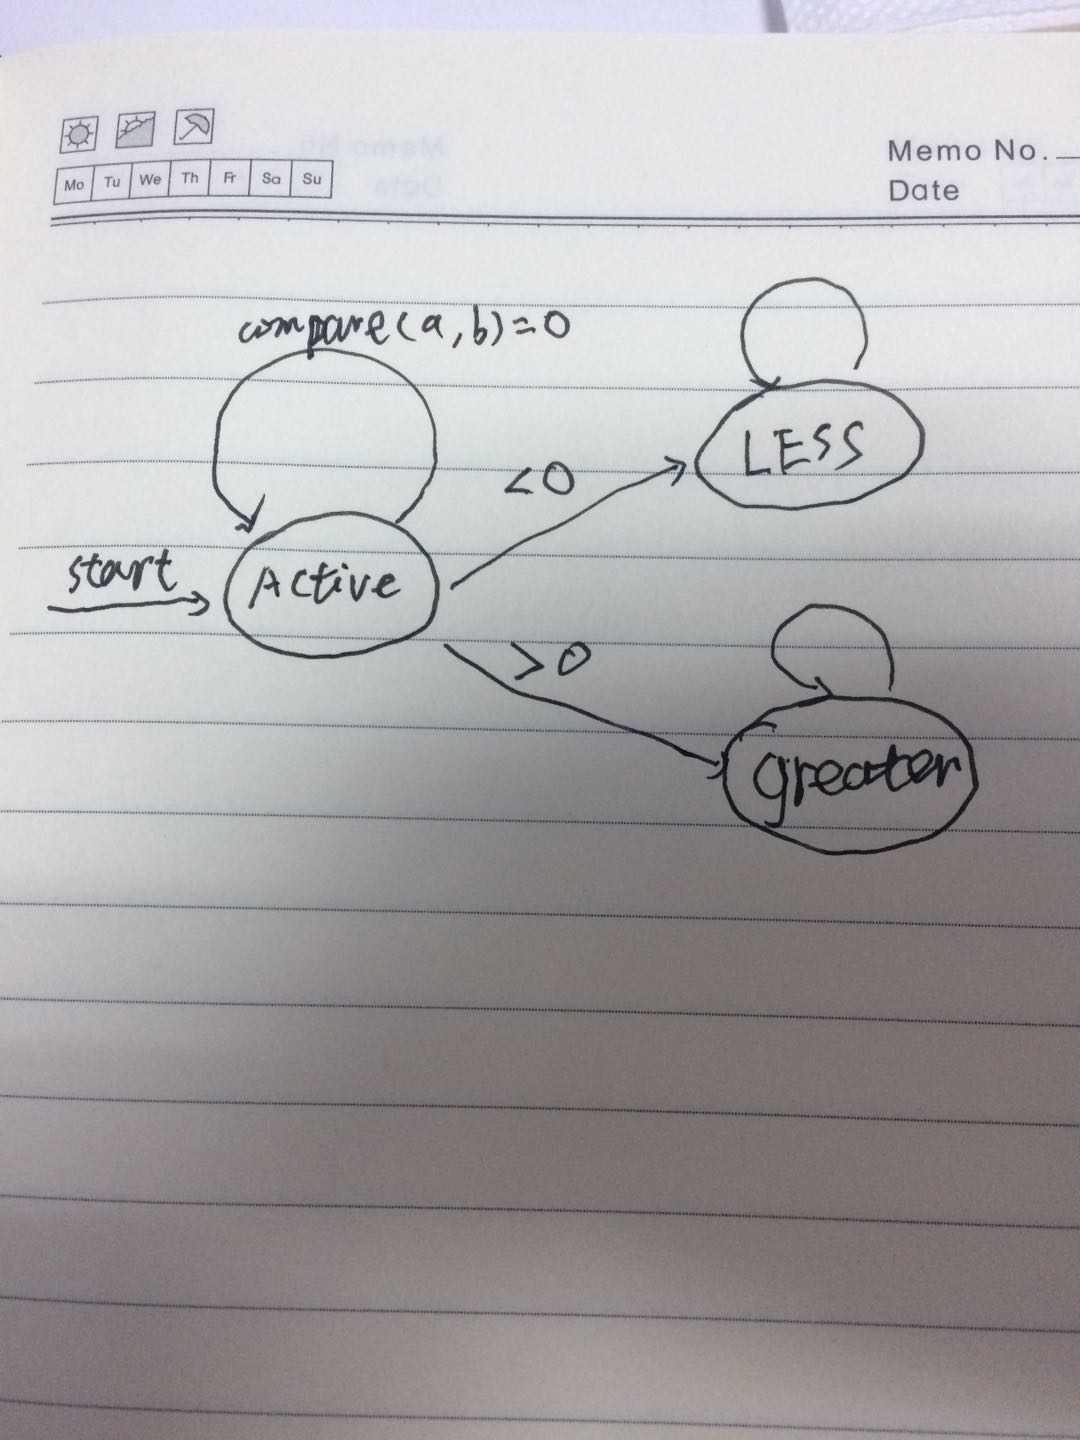 Mo Tu We Th Fr Sa Su
Memo No.
Date
compare(a,b)=0
LESS
<0
start
Active
>0
greater